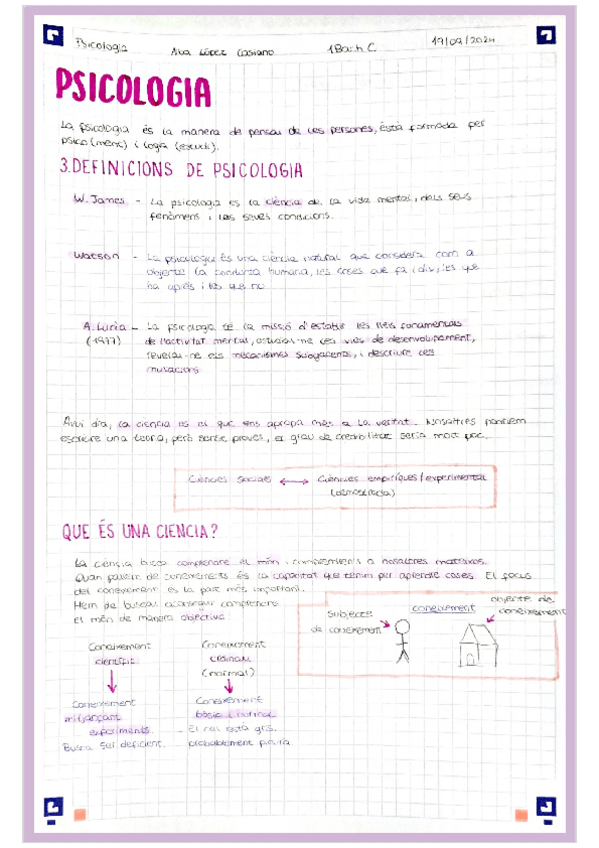 Psicologia Alba López Casiano 1Batx C 19/09/2024
PSICOLOGIA
La psicologia és la manera de pensar de les persones, està formada per
psico (ment) i logia (estudi).
3.DEFINICIONS DE PSICOLOGIA
W. James - La psicologia es la ciència de la vida mental, dels seus
fenòmens i les seves condicions.
Watson - La psicologia és una ciència natural que considera com a
objecte la conducta humana, les coses que fa i diu, les que
ha après i les que no.
A. Luria - La psicologia té la missió d'establir les lleis fonamentals
(1977) de l'activitat mental, estudiar-ne les vies de desenvolupament,
revelar-ne els mecanismes subjacents, i descriure les
mutacions
Avui dia, la ciència és el que ens apropa més a la veritat. Nosaltres podriem
escriure una teoria, però sense proves, el grau de credibilitat seria molt poc.
Ciències socials ↔ Ciències empíriques/experimental
(demostrada)
QUE ÉS UNA CIENCIA?
La ciència busca comprendre el món i comprendre'ns a nosaltres mateixos.
Quan parlem de coneixements és la capacitat que tenim per aprendre coses. El focus
del coneixement es la part més important.
Hem de buscar aconseguir comprendre
el món de manera objectiva
subjecte coneixement objecte de
de coneixement coneixement
Coneixement Coneixement
científic ordinari
(normal)
Coneixement Coneixement
mitjançant bàsic i normal
experiments. - El cel està gris,
Busca ser deficient. probablement plourà